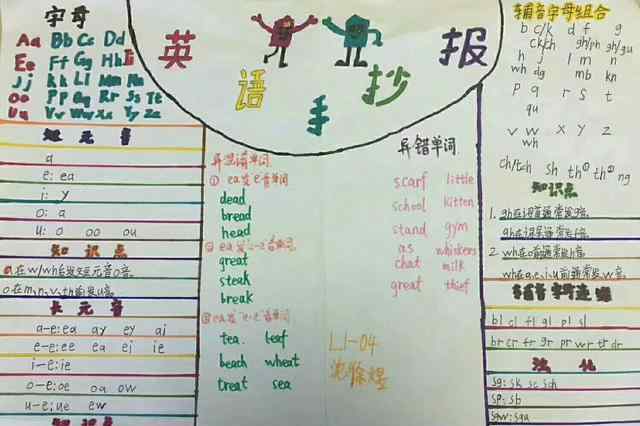 英语手抄报
字母
Aa Bb Cc Dd
Ee Ff Gg Hh Ii
Jj Kk Ll Mm Nn
Oo Pp Qq Rr Ss Tt
Uu Vv Ww Xx Yy Zz
短元音
a
e: ea
i: y
o: a
u: o oo ou
知识点
a在w/wh后发短元音o音.
o在m,n,v,th前发u音.
长元音
a-e: ea ay ey ai
e-e: ee ea ei ie
i-e: ie
o-e: oe oa ow
u-e: ue ew
知识点
易混淆单词
① ea发"e"音单词
dead
bread
head
great
steak
break
③ ea发"e-e"音单词
tea leaf
beach wheat
treat sea
易错单词
scarf little
school kitten
stand gym
as whiskers
chat milk
great thief
L1-04
辅音字母组合
b c/k d f g
ck/ch gh/ph gh/gu
h j l m n
wh dg mb kn
p q r s t
qu
v w x y z
wh
ch/tch sh th① th② ng
知识点
1. gh在词首通常发g音.
gh在词尾通常发f音.
2. wh在o前通常发h音.
wh在a.e.i.u前通常发w音.
辅音字母连缀
bl cl fl gl pl sl
br cr fr gr pr wr tr dr
浊化
sg: sk sc sch
sp: sb
sgw: squ